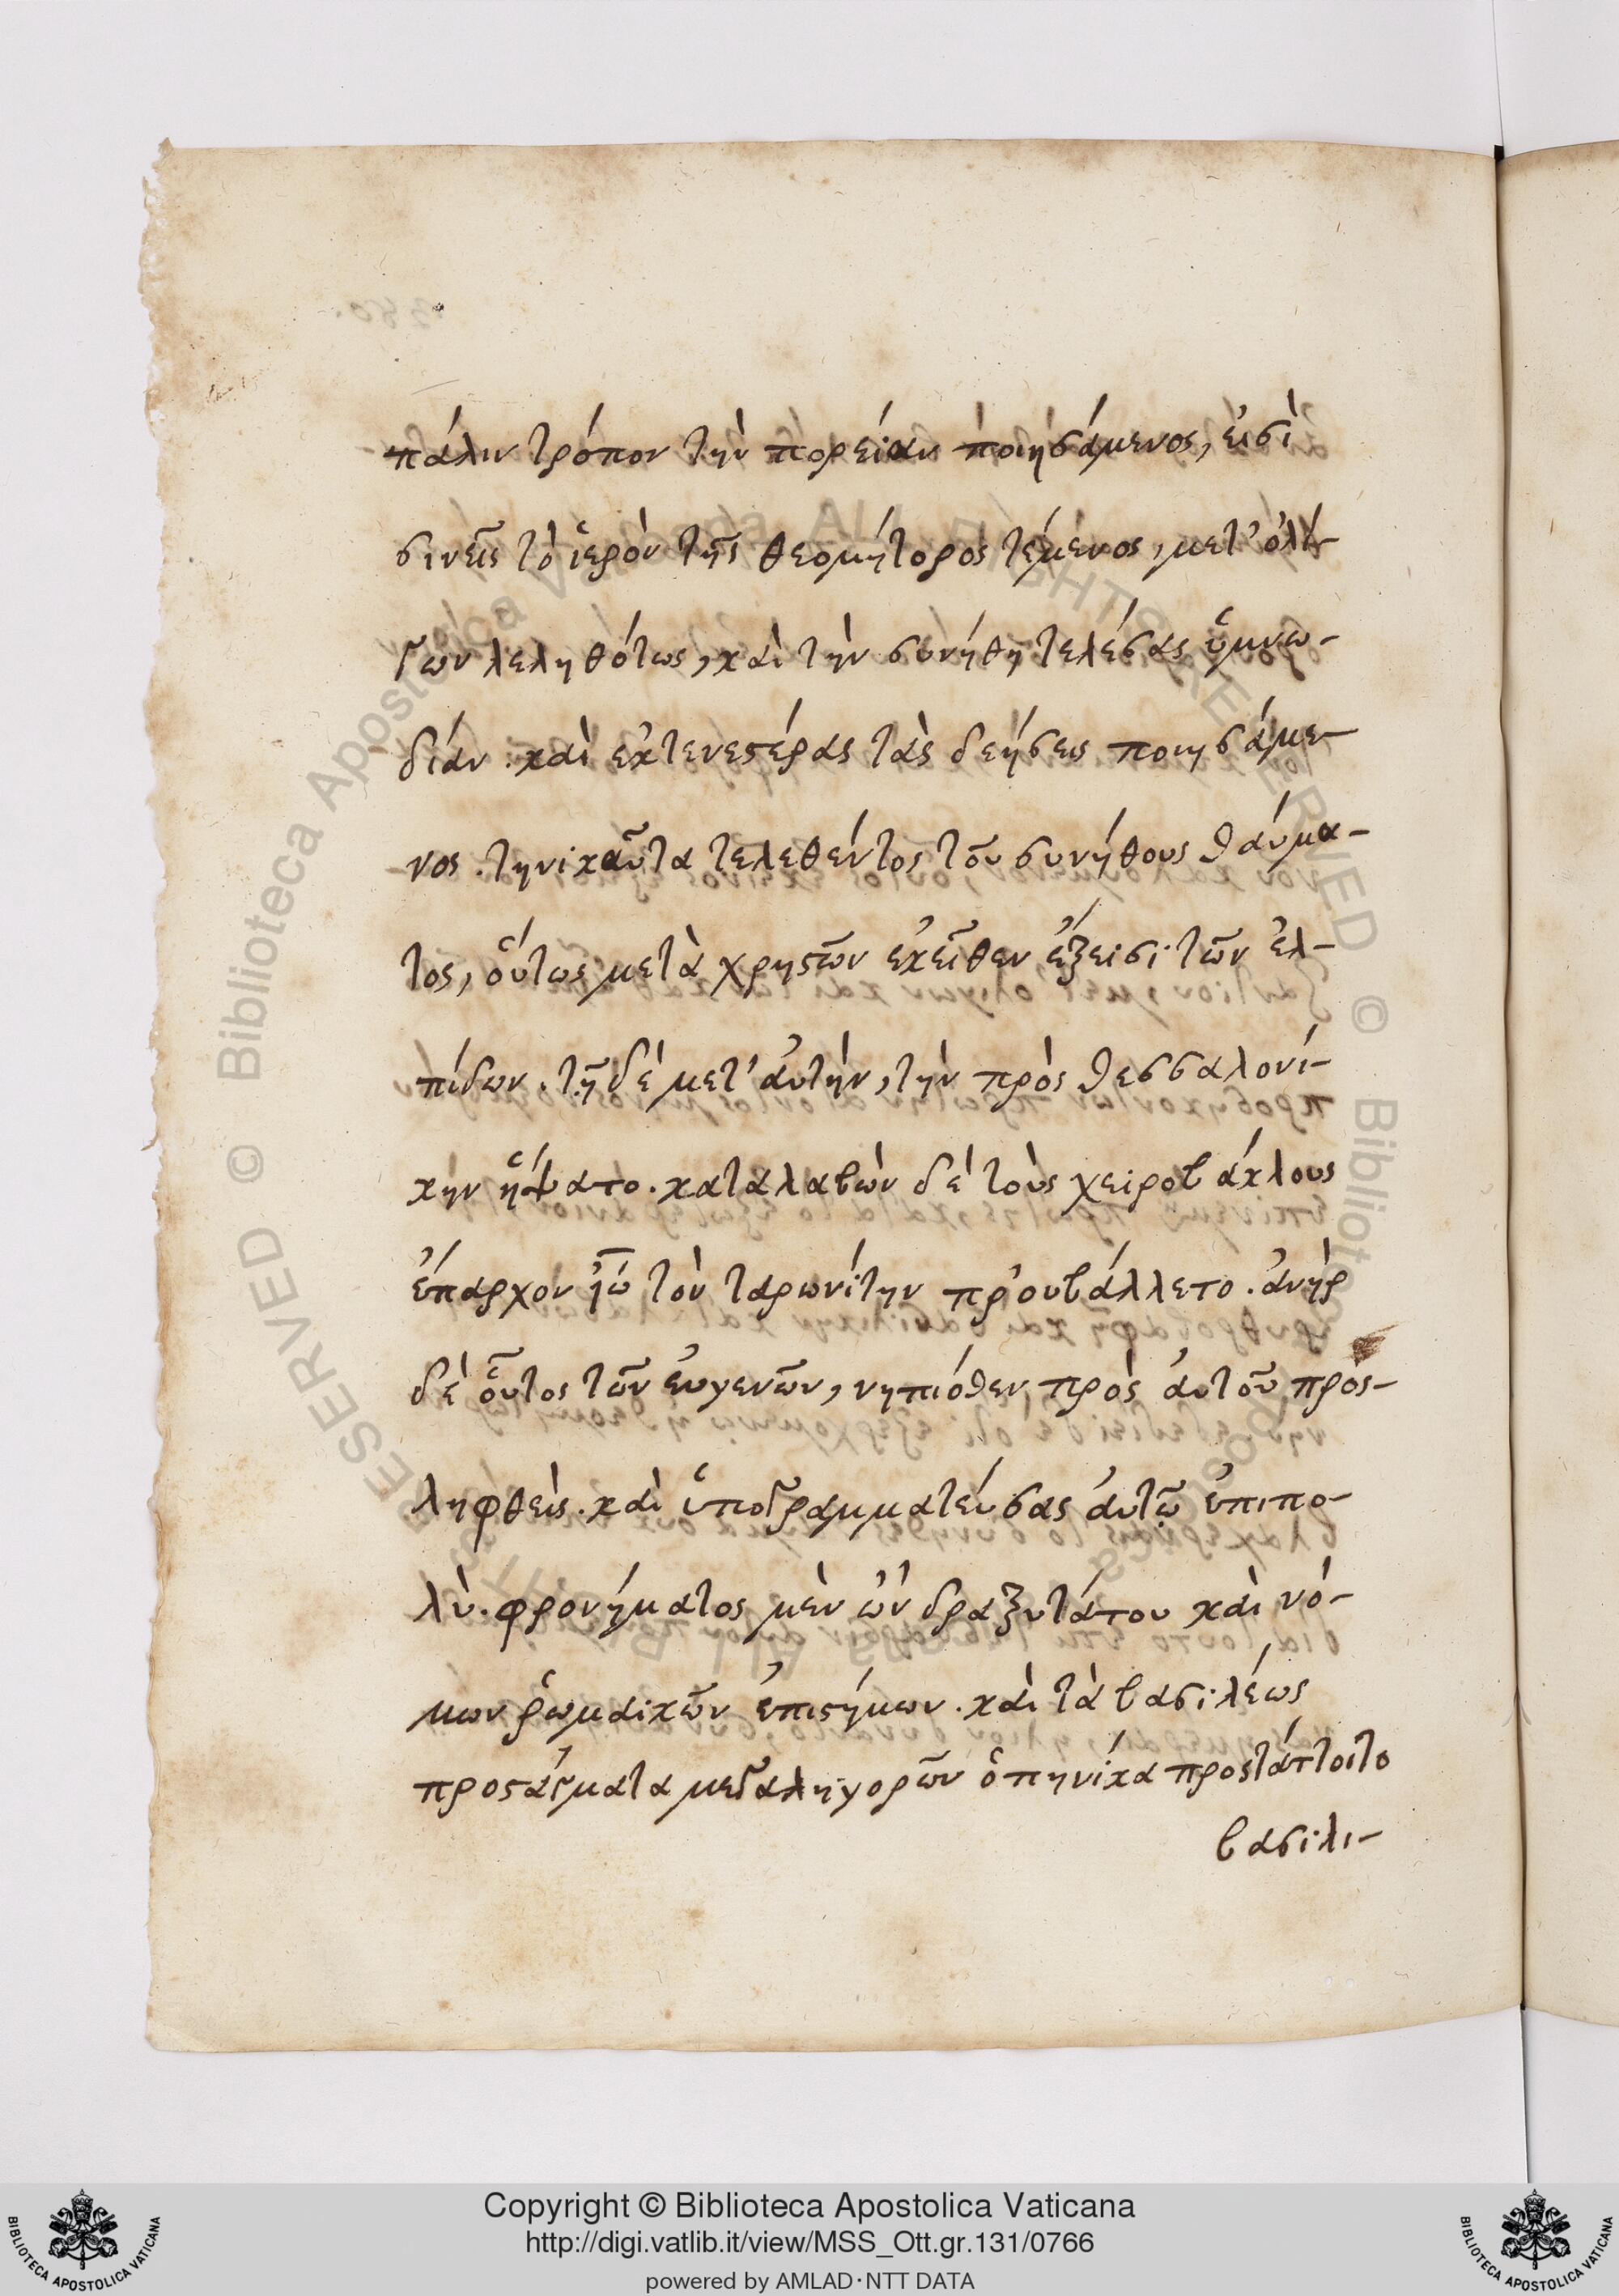 πάλιν τρόπον τὴν πορείαν ποιησάμενος, εἰσὶ
σιν εἰς τὸ ἱερὸν τῆς θεομήτορος τέμενος, μετ' ὀλί-
γων λεληθότως, καὶ τὴν συνήθη τελέσας ὑμνω-
δίαν. καὶ ἐκτενεστέρας τὰς δεήσεις ποιησάμε-
νος. τηνικαῦτα τελεθέντος τοῦ συνήθους θαύμα-
τος, οὕτως μετὰ χρηστῶν ἐκεῖθεν ἔξεισι τῶν ἐλ-
πίδων. τῇ δὲ μετ' αὐτὴν, τὴν πρὸς θεσσαλονί-
κην ἥψατο. καταλαβὼν δὲ τοὺς χειροβάκλους
ἔπαρχον ἰω̄ τὸν ταρωνίτην προυβάλλετο. ἀνὴρ
δὲ οὗτος τῶν εὐγενῶν, νηπιόθεν πρὸς αὐτοῦ προς-
ληφθεὶς. καὶ ὑπογραμματεύσας αὐτῷ ἐπιπο-
λὺ. φρονήματος μὲν ὢν δραξυτάτου καὶ νό-
μων ῥωμαικῶν ἐπιστήμων. καὶ τὰ βασιλέως
προστάγματα μεγαληγορῶν ὁπηνίκα προστάττοιτο
βασιλι-
Copyright © Biblioteca Apostolica Vaticana
http://digi.vatlib.it/view/MSS_Ott.gr.131/0766
powered by AMLAD·NTT DATA